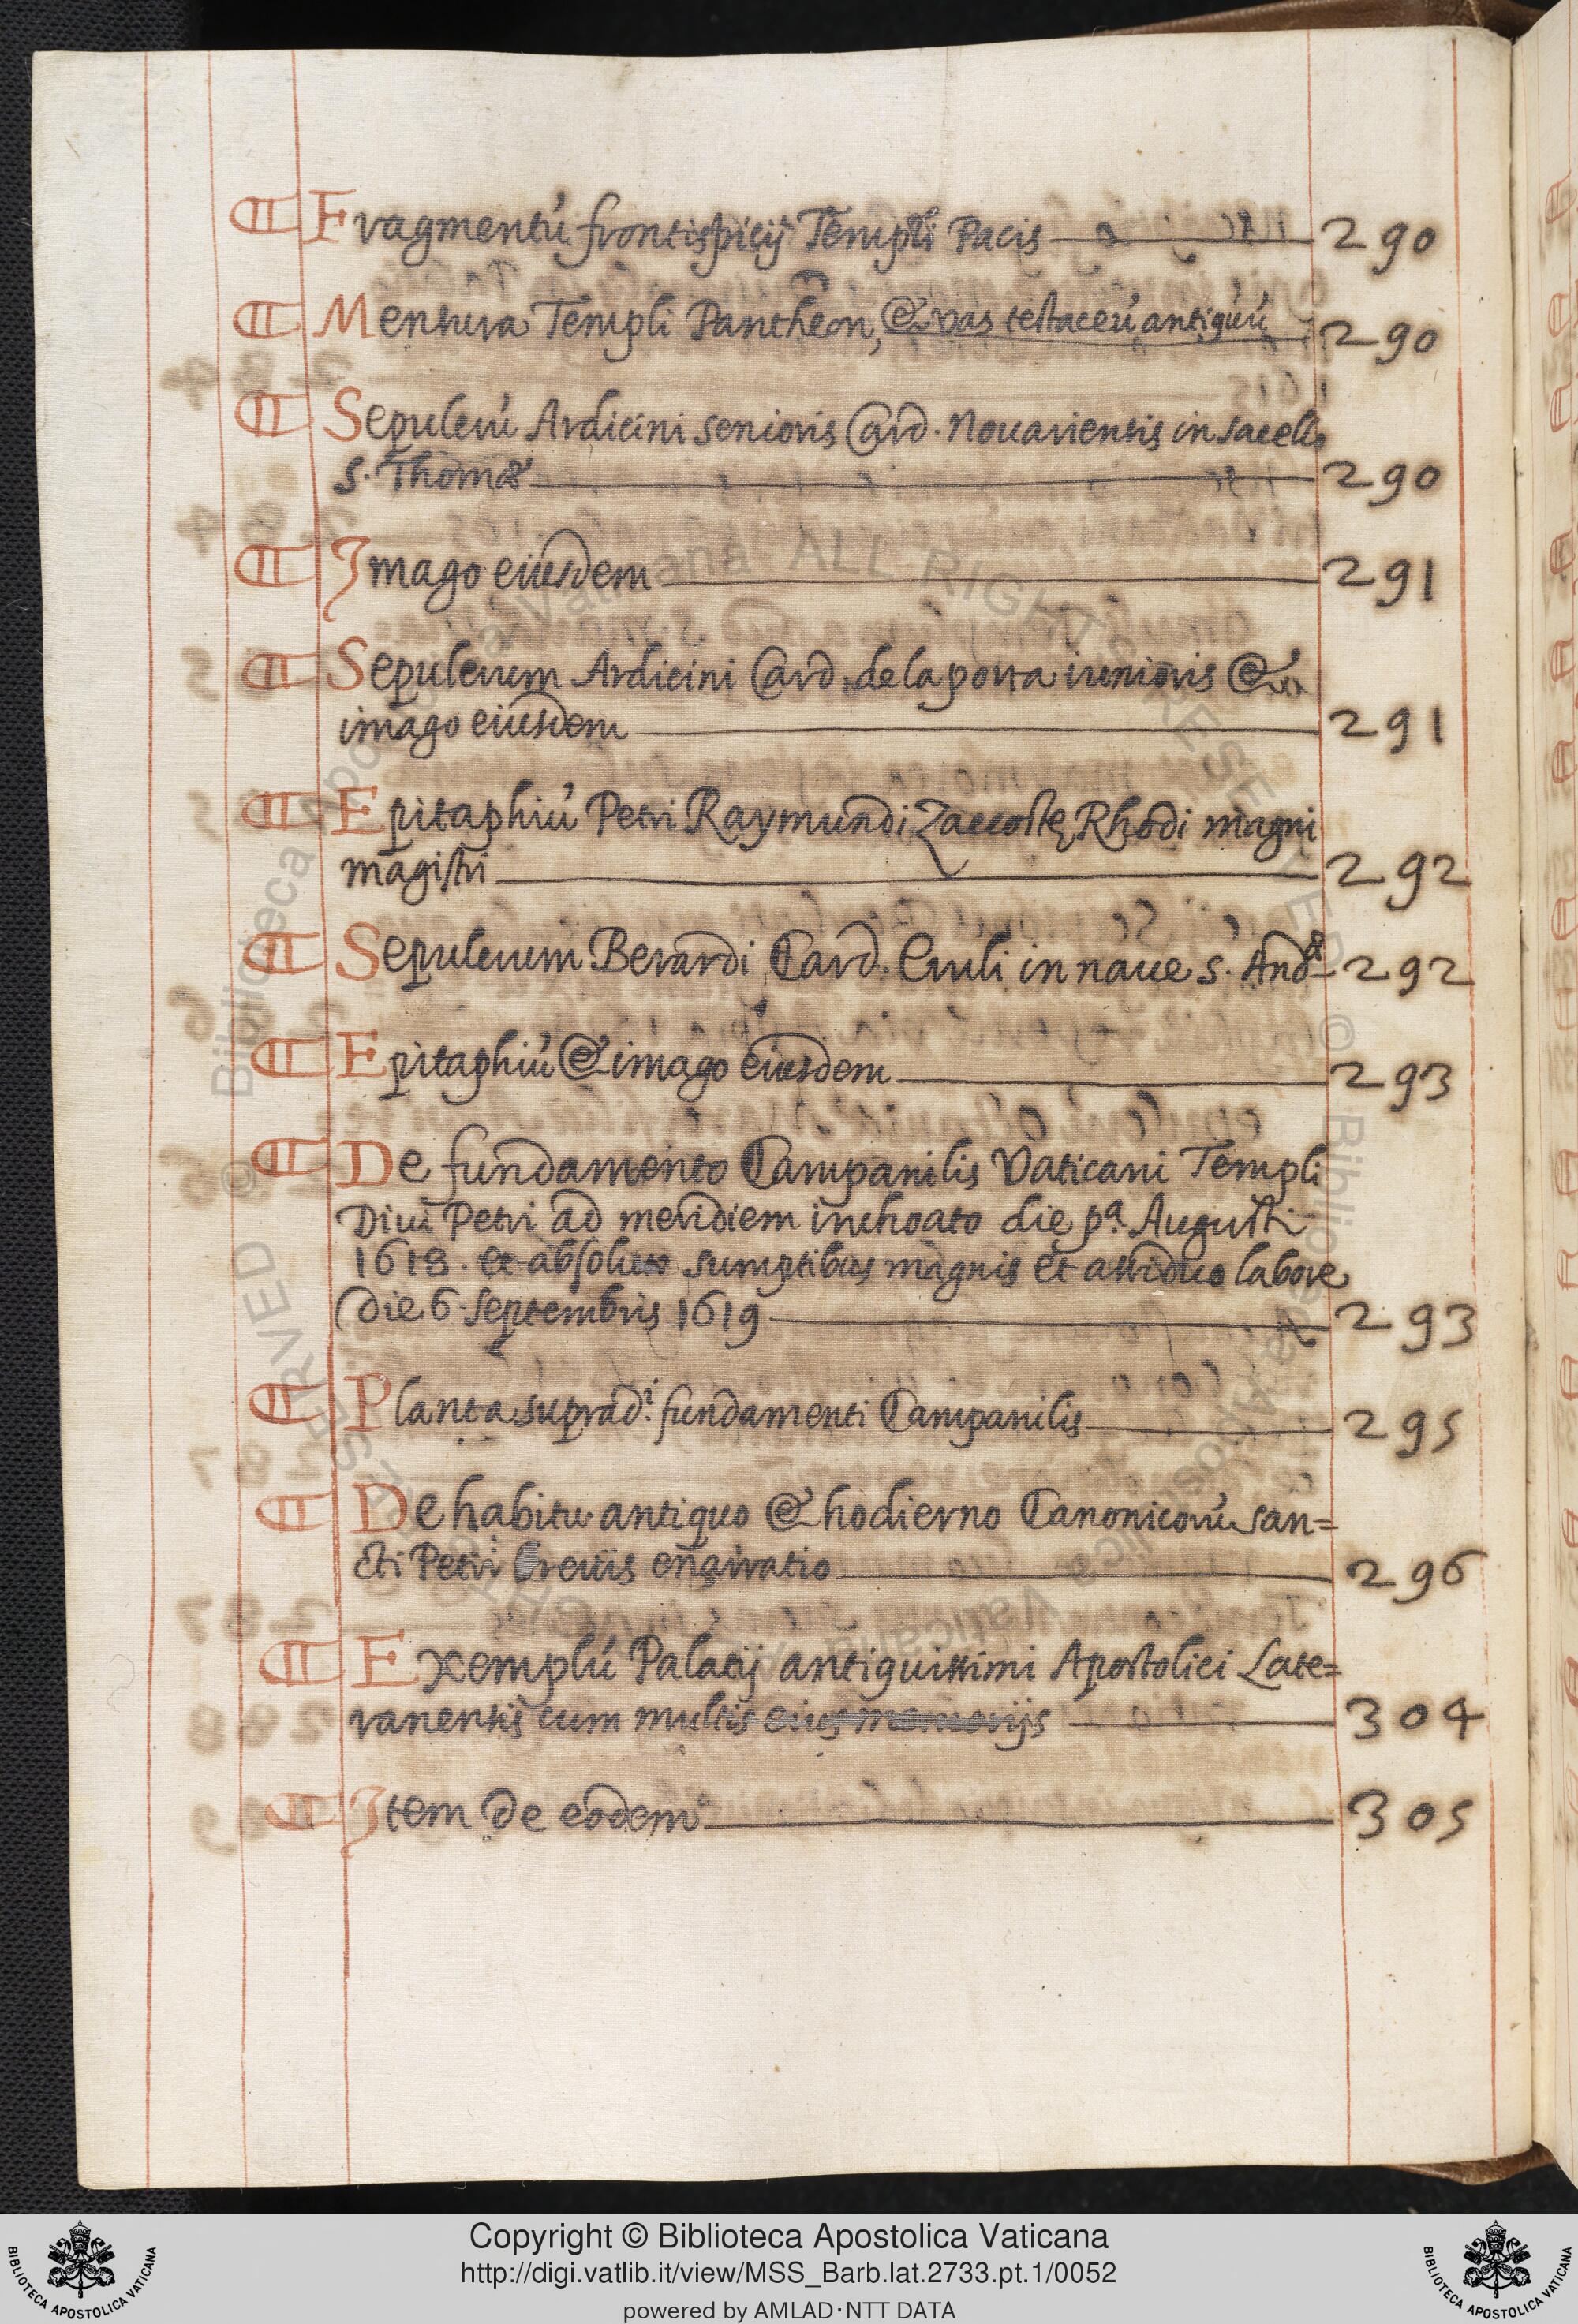 ¶ Fragmentú frontispicij Templi Pacis 290
¶ Mensura Templi Pantheon, & vas testaceú antiquú 290
¶ Sepulcrú Ardicini senioris Card. Nouariensis in sacello
S. Thomæ 290
¶ Imago eiusdem 291
¶ Sepulcrum Ardicini Card. de la porta iunioris &
imago eiusdem 291
¶ Epitaphiú Petri Raymundi Zaccostę Rhodi magni
magistri 292
¶ Sepulcrum Berardi Card. Eruli in naue s. Andꝫ 292
¶ Epitaphiú & imago eiusdem 293
¶ De fundamento Campanilis Vaticani Templi
Diui Petri ad meridiem inchoato die pª. Augusti
1618. et absoluto sumptibus magnis et assiduo labore
die 6. septembris 1619 293
¶ Planta supradⁱ. fundamenti Campanilis 295
¶ De habitu antiquo & hodierno Canonicorú san=
cti Petri breuis enarratio 296
¶ Exemplú Palatij antiquissimi Apostolici Late=
ranensis cum multis eius memorijs 304
¶ Item de eodem 305
© Biblioteca Apostolica Vaticana ALL RIGHTS RESERVED © Biblioteca Apostolica Vaticana ALL RIGHTS RESERVED
Copyright © Biblioteca Apostolica Vaticana
http://digi.vatlib.it/view/MSS_Barb.lat.2733.pt.1/0052
powered by AMLAD·NTT DATA
BIBLIOTECA APOSTOLICA VATICANA
BIBLIOTECA APOSTOLICA VATICANA